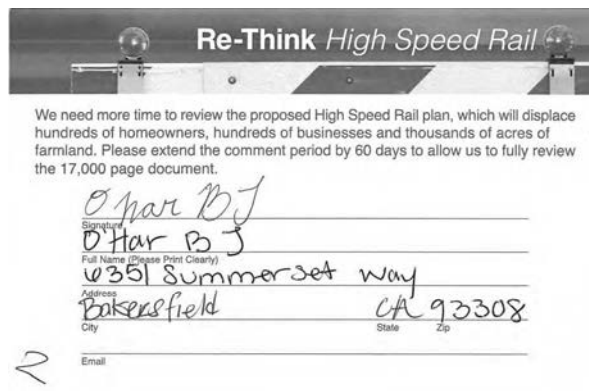 Re-Think High Speed Rail
We need more time to review the proposed High Speed Rail plan, which will displace
hundreds of homeowners, hundreds of businesses and thousands of acres of
farmland. Please extend the comment period by 60 days to allow us to fully review
the 17,000 page document.
O'Har BJ
Signature
O'Har B J
Full Name (Please Print Clearly)
6351 Summerset Way
Address
Bakersfield CA 93308
City State Zip
Email
2